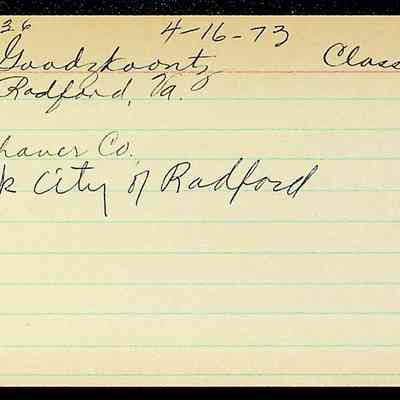 36 4-16-73
Goodykoontz Class
Radford, Va.
haver Co.
k City of Radford